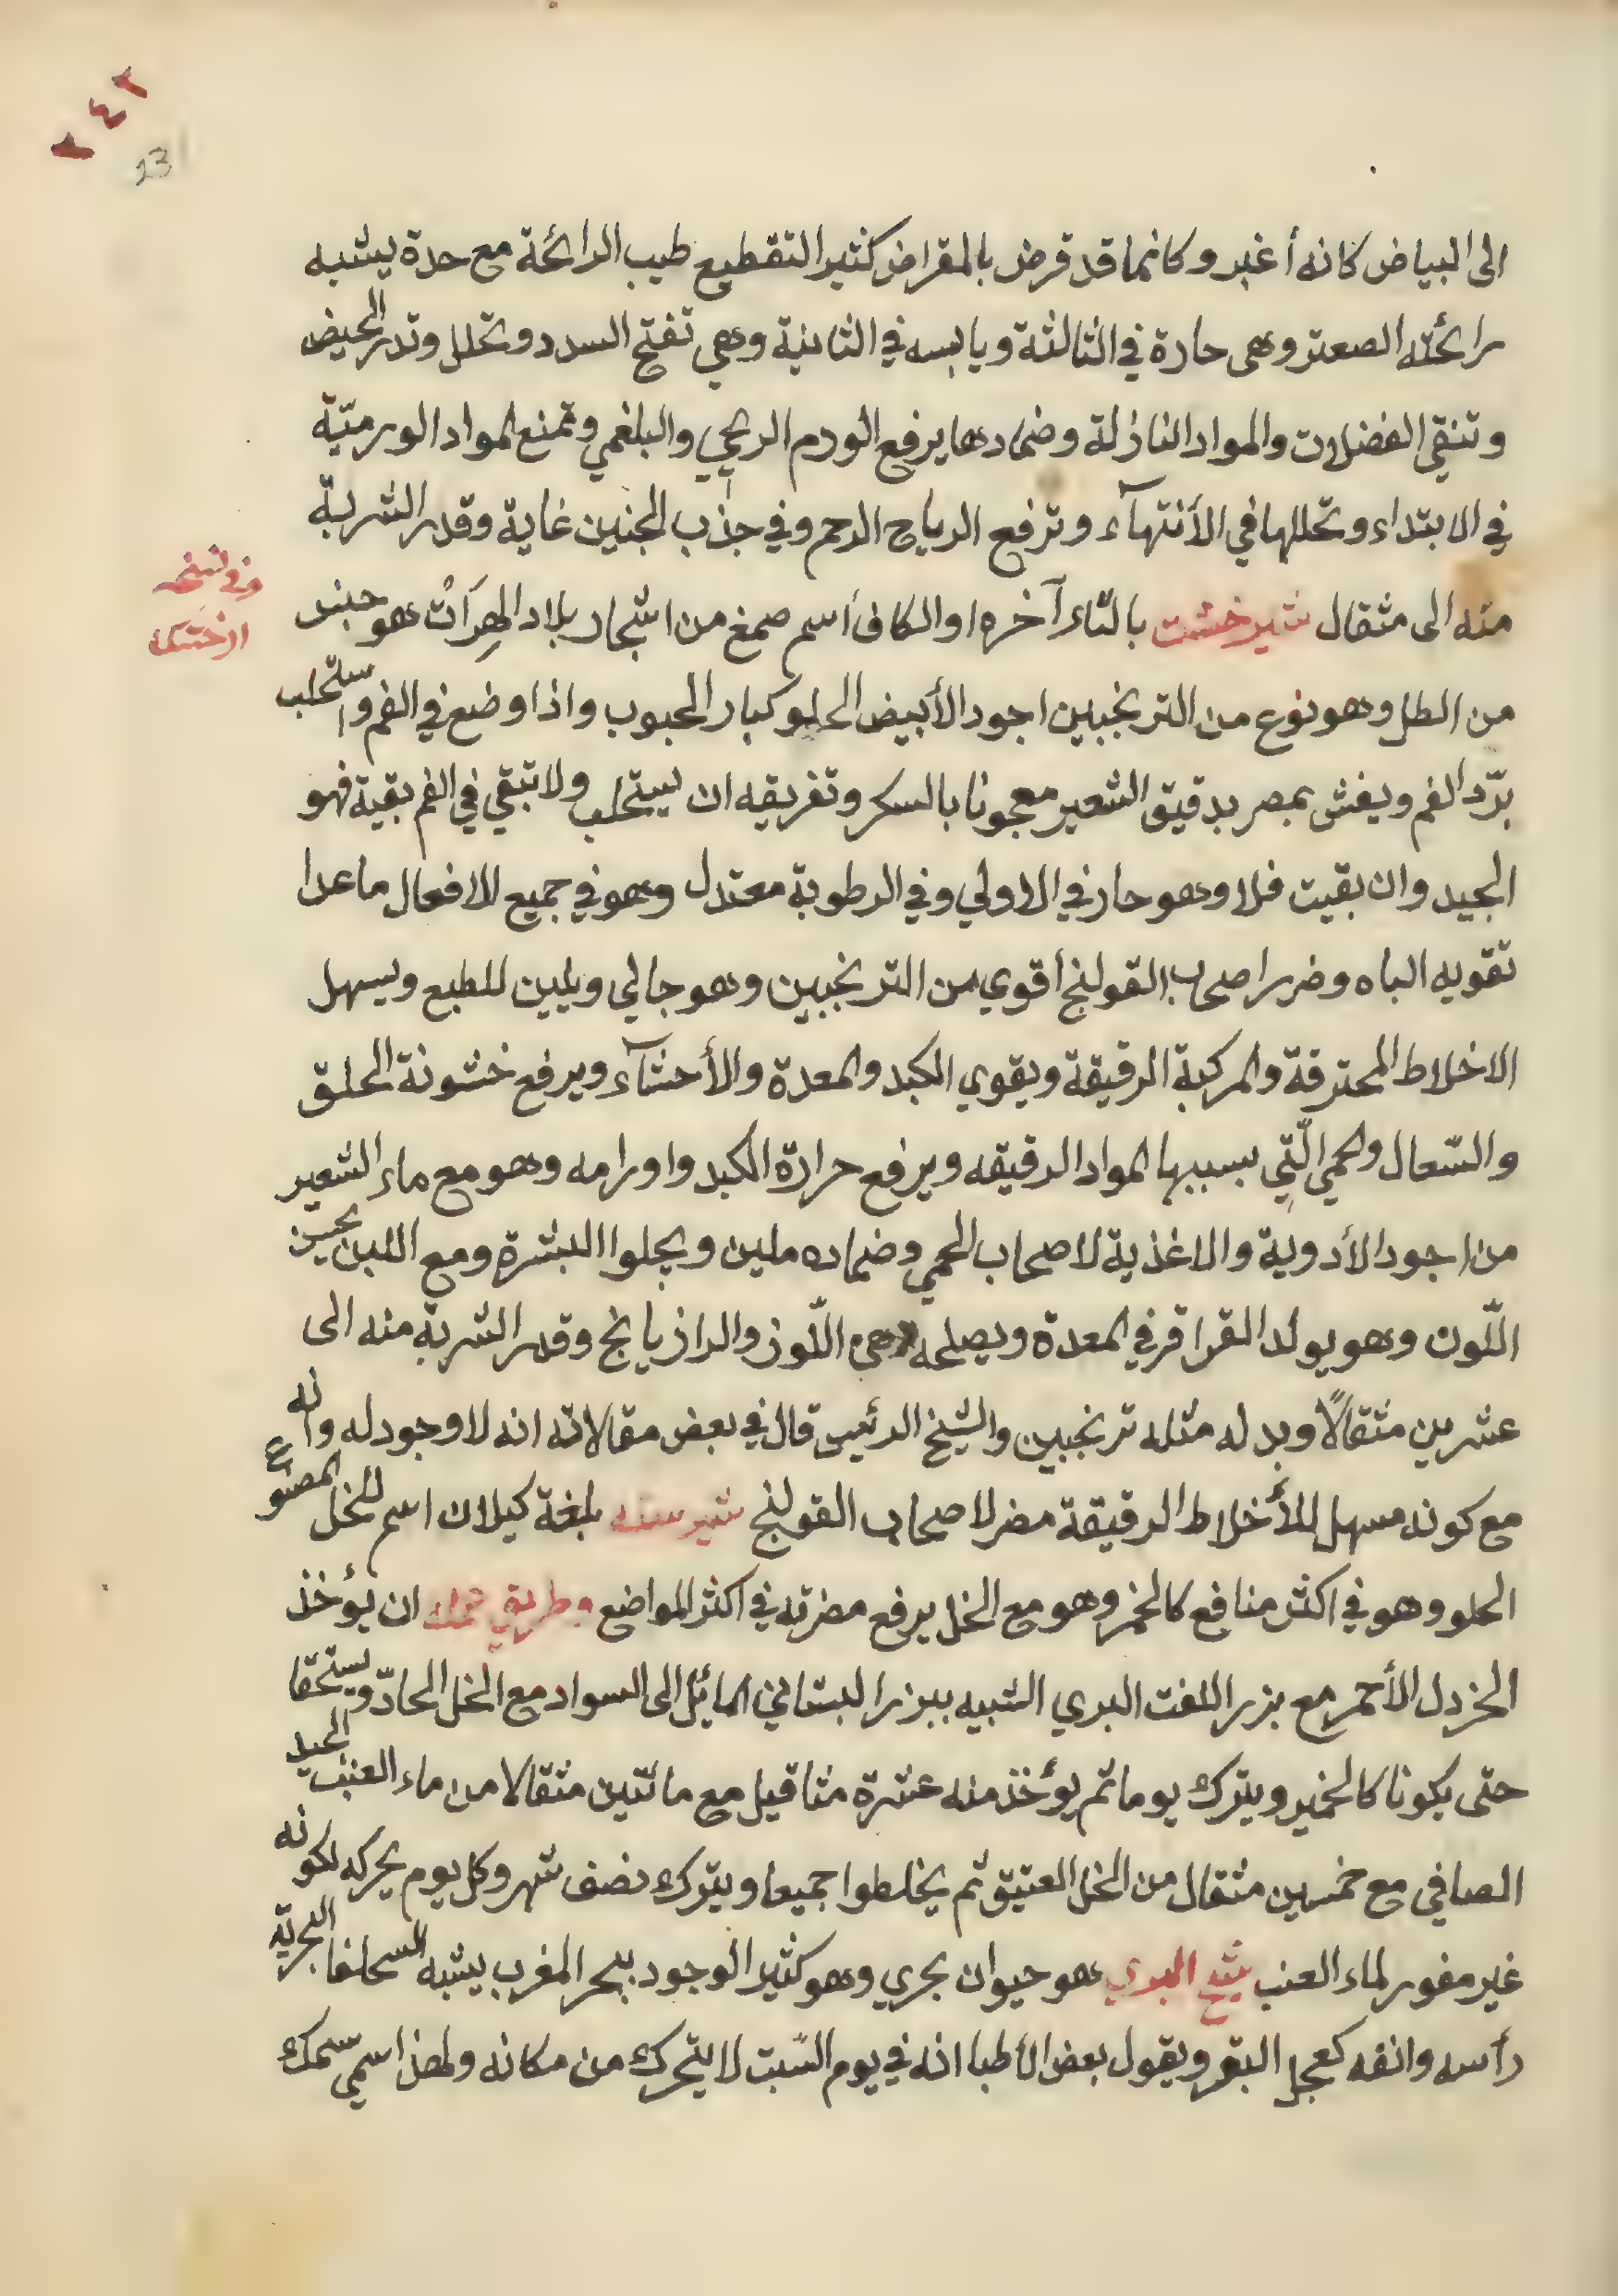 ٢٤٢
231
الى البياض كانه أغبر وكانما قد قرض بالمقراض كثير التقطيع طيب الرائحة مع حدة يشبه
رائحته الصعتر وهى حارة في الثالثة ويابسه في الثانية وهي تفتح السدد وتحلل وتدر الحيض
وتنقي الفضلات والمواد النازلة وضمادها يرفع الورم الريحي والبلغمي وتمنع المواد الورميّة
في الابتداء وتحللها في الأنتهآء وترفع الرياح الرحم وفي جذب الجنين غاية وقدر الشربة
منه الى مثقال شيرخشت بالتاء آخره او الكاف أسم صمغ من اشجار بلاد الهرات هو جنبد
وفي نسخه
ارخشك
من الطل وهو نوع من الترنجبين اجود الأبيض الحلو كبار الحبوب واذا وضع في الفم واستحلب
برّد الفم ويغش بمصر بدقيق الشعير معجونا بالسكر وتفريقه ان يستحلب ولا تبقي في الفم بقية فهو
الجيد وان بقيت فلا وهو حار في الاولي وفي الرطوبة معتدل وهو في جميع الافعال ماعدا
تقويه الباه وضرر اصحاب القولنج أقوي من الترنجبين وهو جالي ويلين للطبع ويسهل
الاخلاط المحترقة والمركبة الرقيقة ويقوي الكبد والمعدة والأحشآء ويرفع خشونة الحلق
والسّعال والحمي الّتي بسببها المواد الرقيقه ويرفع حرارة الكبد واورامه وهو مع ماء الشعير
من اجود الأدوية والاغذية لاصحاب الحمي وضماده ملين ويجلوا البشرة ومع اللبن يحسن
اللّون وهو يولد القراقر في المعدة ويصلحه دهن اللّوز والرازيانج وقدر الشربة منه الى
عشرين مثقالاً وبدله مثله ترنجبين والشيخ الرئيس قال في بعض مقالاته انه لا وجود له وانه
مع كونه مسهل للأخلاط الرقيقة مضر لاصحاب القولنج شيرسنه بلغة كيلان اسم للخل المصنوع
الحلو وهو في اكثر منافع كالخمر وهو مع الخل يرفع مضرته في اكثر المواضع وطريق عمله ان يؤخذ
الخردل الأحمر مع بزر اللفت البري الشبيه ببزر البستاني المائل الى السواد مع الخل الحادّ ويستحقا
حتى يكونا كالخمير ويترك يوما ثم يؤخذ منه عشرة مثاقيل مع مائتين مثقالا من ماء العنب الجيد
الصافي مع خمسين مثقال من الخل العتيق ثم يخلطوا جميعا ويترك نصف شهر وكل يوم يحركه لكونه
غير مفور لماء العنب شيخ البحري هو حيوان بحري وهو كثير الوجود ببحر المغرب يشبه السحلفا البحرية
رأسه وانفه كعجل البقر ويقول بعض الأطبا انه في يوم السّبت لا يتحرك من مكانه ولهذا سمي سمك